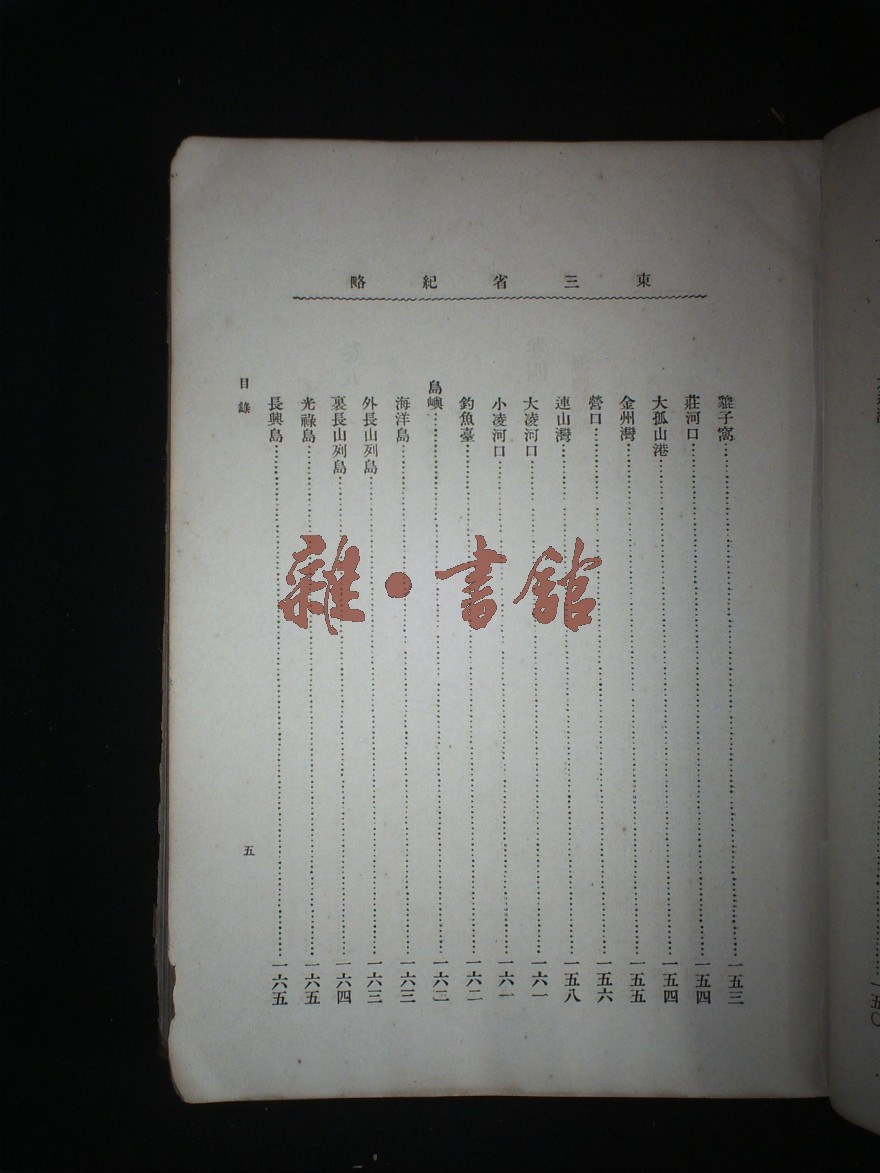 東三省紀略
貔子窩……一五三
莊河口……一五四
大孤山港……一五四
金州灣……一五五
營口……一五六
連山灣……一五八
大凌河口……一六一
小凌河口……一六一
釣魚臺……一六二
島嶼……一六二
海洋島……一六三
外長山列島……一六三
裏長山列島……一六四
光祿島……一六五
長興島……一六五
目錄
五
雜·書館
一五〇